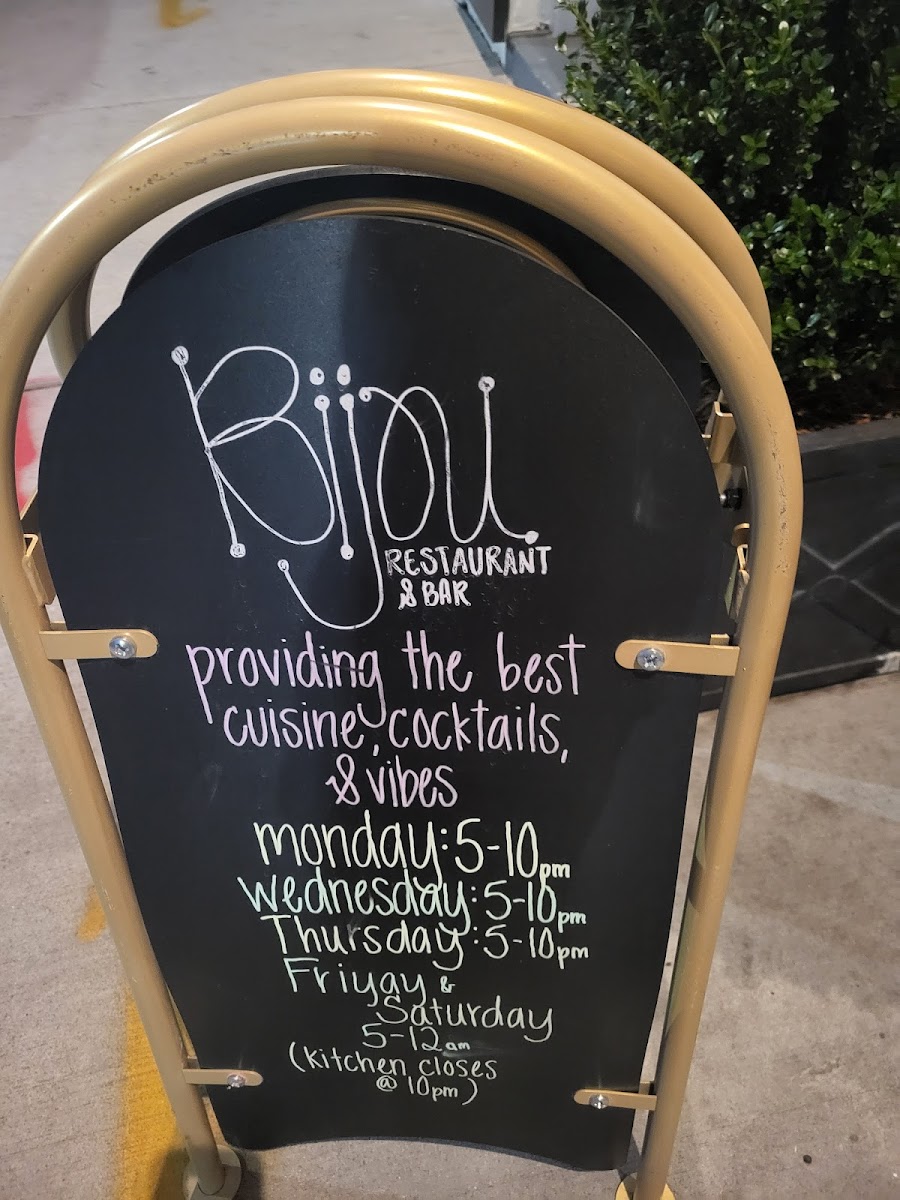 Bijou
RESTAURANT
& BAR
providing the best
cuisine, cocktails,
& vibes
monday: 5-10pm
wednesday: 5-10pm
Thursday: 5-10pm
Friyay &
Saturday
5-12am
(kitchen closes
@ 10pm)